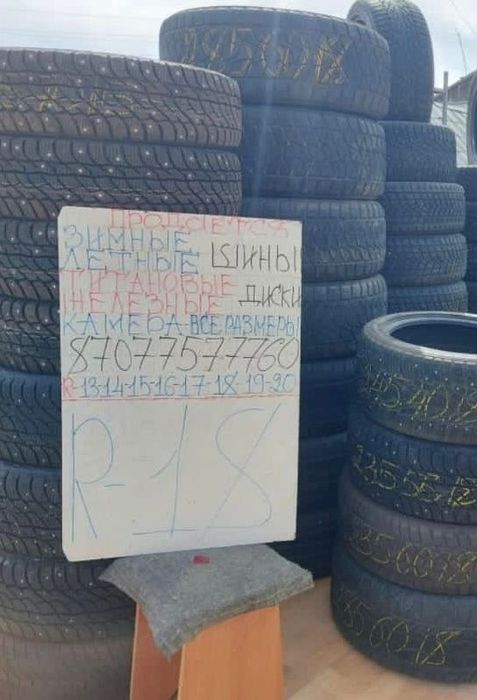 285 60 18
ПРОДАЕТСЯ
ЗИМНЫЕ
ЛЕТНЫЕ ШИНЫ
ТИТАНОВЫЕ
ЖЕЛЕЗНЫЕ ДИСКИ
КАМЕРА-ВСЕ РАЗМЕРЫ
87077577760
R-13-14-15-16-17-18-19-20
R-18
235 55 18
235 60 18
285 60 18